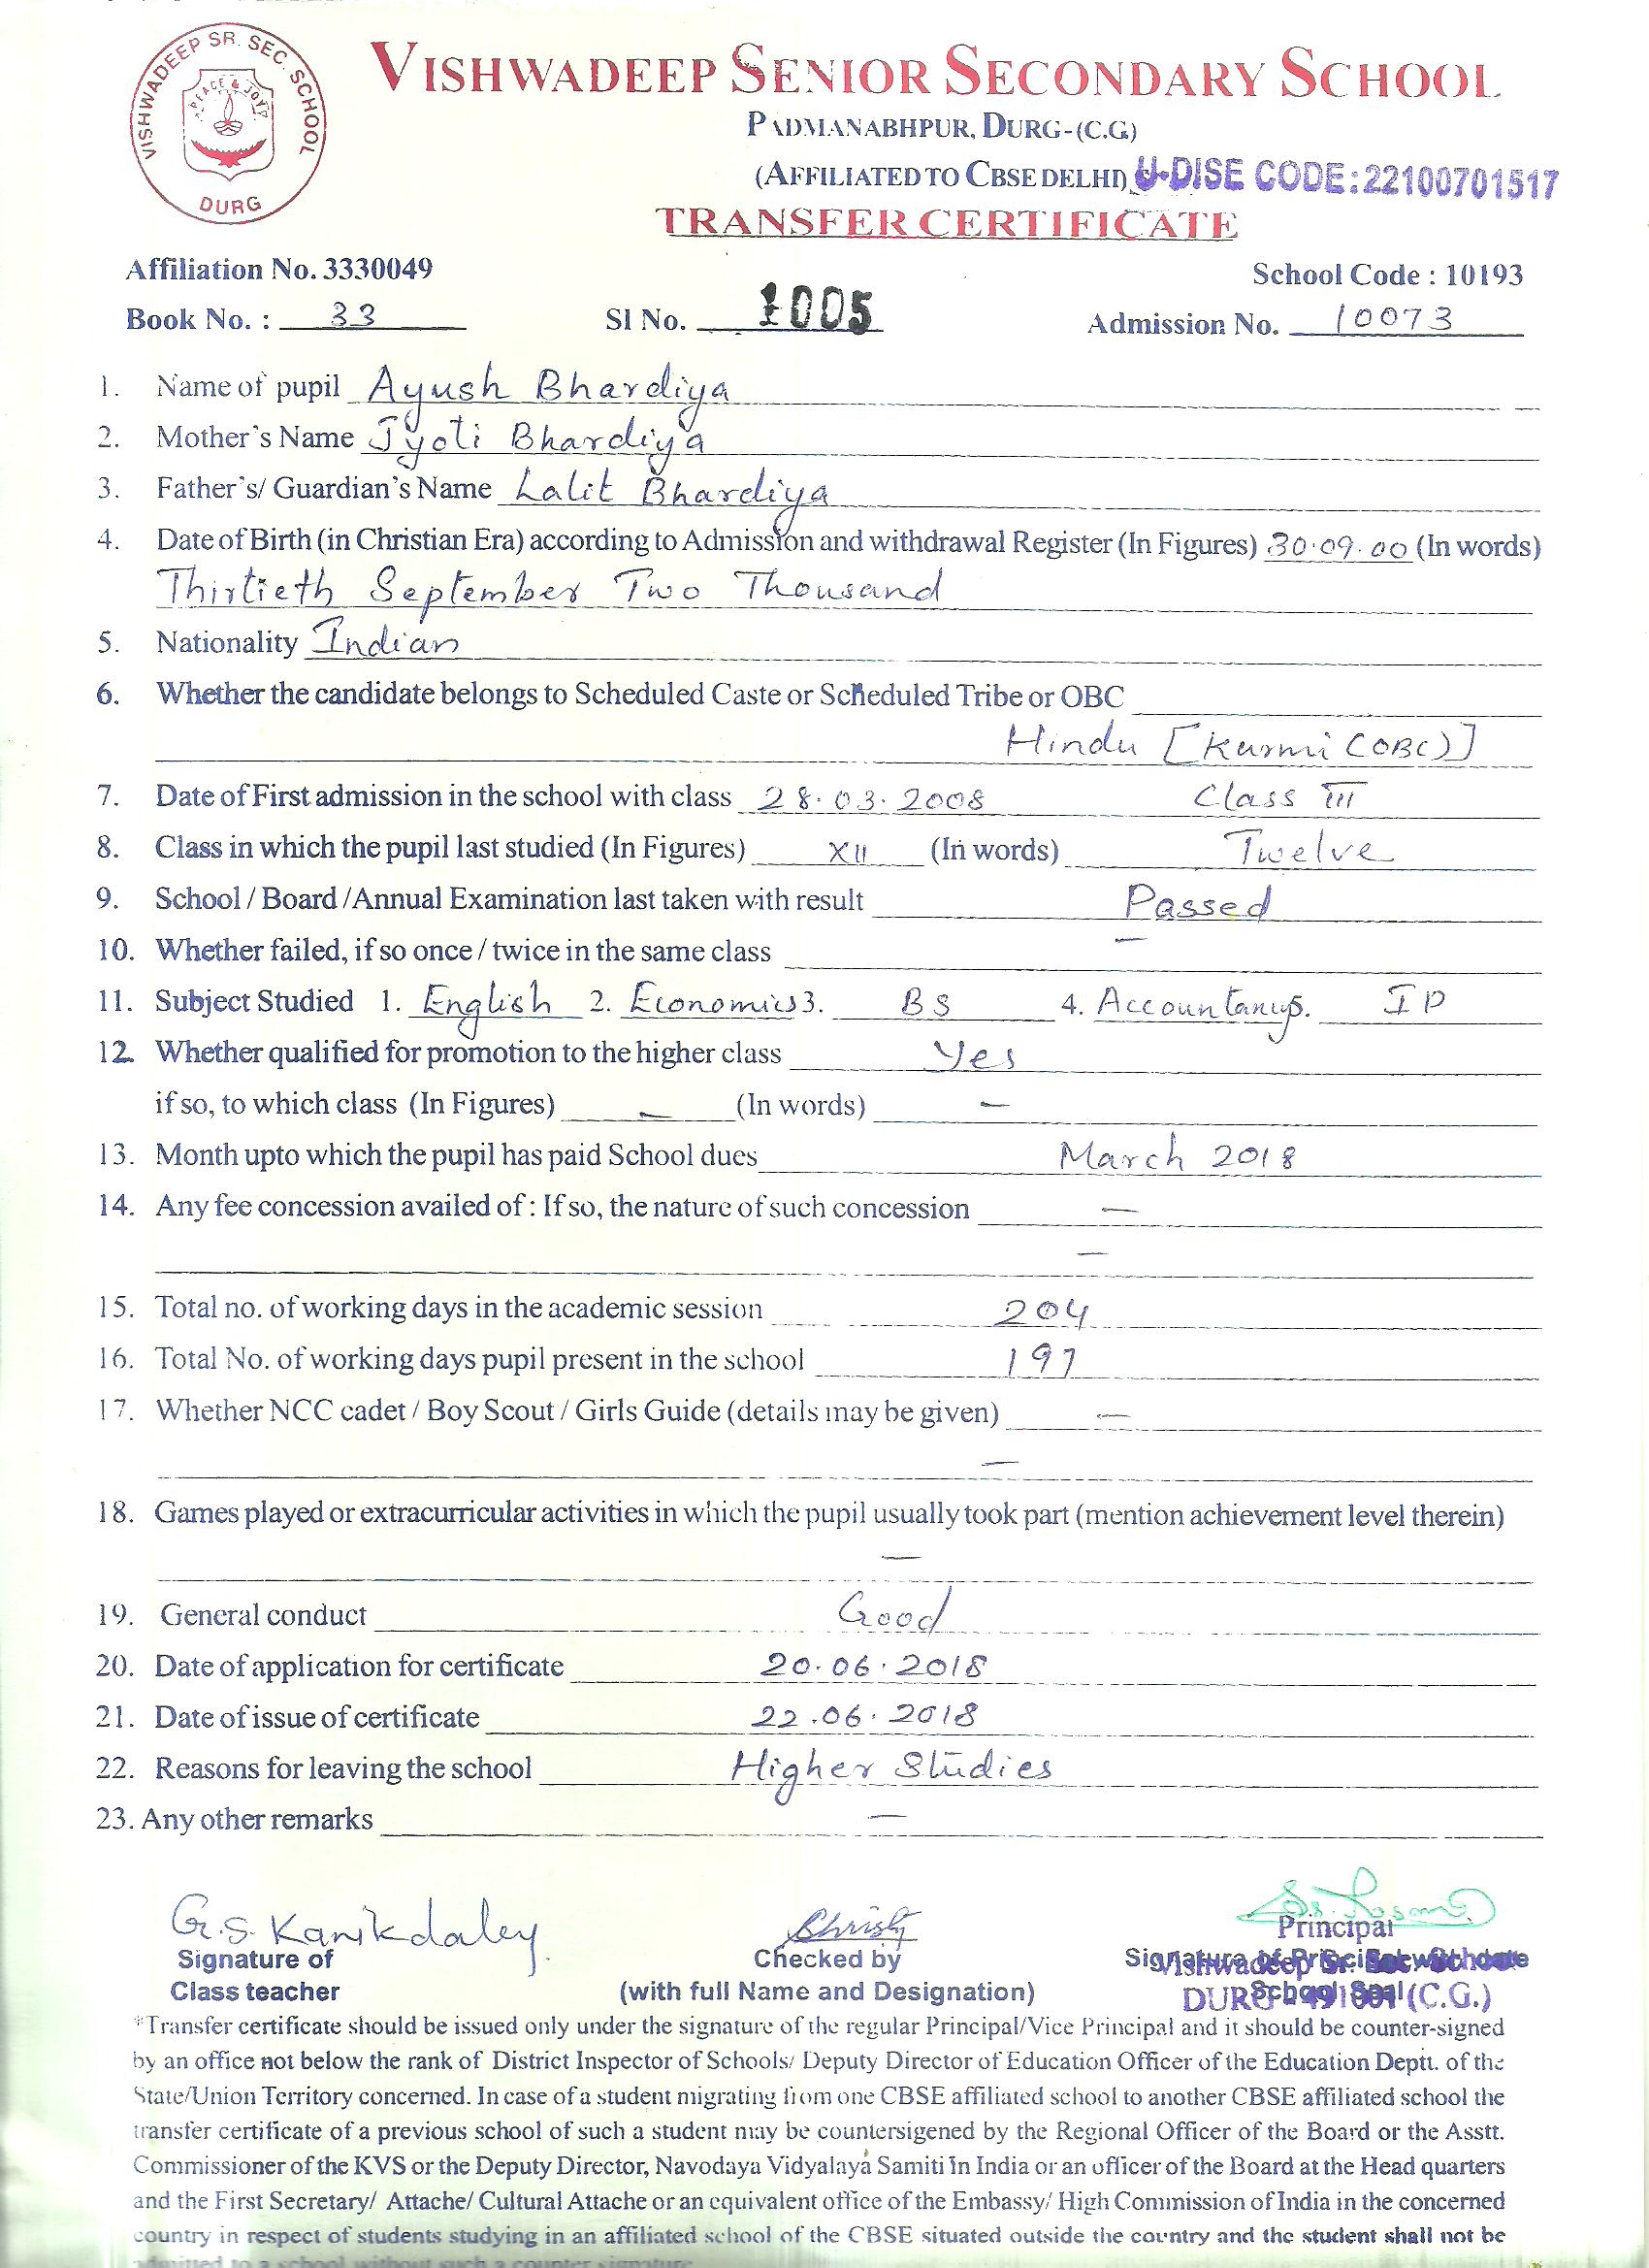 VISHWADEEP SR. SEC. SCHOOL
PEACE & JOY
DURG
VISHWADEEP SENIOR SECONDARY SCHOOL
PADMANABHPUR, DURG-(C.G)
(AFFILIATED TO CBSE DELHI) U-DISE CODE:22100701517
TRANSFER CERTIFICATE
Affiliation No. 3330049 School Code : 10193
Book No. : 33 Sl No. 1005 Admission No. 10073
1. Name of pupil Ayush Bhardiya
2. Mother's Name Jyoti Bhardiya
3. Father's/ Guardian's Name Lalit Bhardiya
4. Date of Birth (in Christian Era) according to Admission and withdrawal Register (In Figures) 30.09.00 (In words)
Thirtieth September Two Thousand
5. Nationality Indian
6. Whether the candidate belongs to Scheduled Caste or Scheduled Tribe or OBC
Hindu [Kurmi (OBC)]
7. Date of First admission in the school with class 28.03.2008 Class III
8. Class in which the pupil last studied (In Figures) XII (In words) Twelve
9. School / Board / Annual Examination last taken with result Passed
10. Whether failed, if so once / twice in the same class —
11. Subject Studied 1. English 2. Economics 3. BS 4. Accountancy 5. IP
12. Whether qualified for promotion to the higher class Yes
if so, to which class (In Figures) — (In words) —
13. Month upto which the pupil has paid School dues March 2018
14. Any fee concession availed of : If so, the nature of such concession —
—
15. Total no. of working days in the academic session 204
16. Total No. of working days pupil present in the school 197
17. Whether NCC cadet / Boy Scout / Girls Guide (details may be given) —
—
18. Games played or extracurricular activities in which the pupil usually took part (mention achievement level therein)
—
19. General conduct Good
20. Date of application for certificate 20.06.2018
21. Date of issue of certificate 22.06.2018
22. Reasons for leaving the school Higher Studies
23. Any other remarks —
G.S. Kanikdaley Christy
Principal
Signature of Checked by Signature of Principal with date
Vishwadeep Sr. Sec. School
Class teacher (with full Name and Designation) School Seal
DURG - 491001 (C.G.)
*Transfer certificate should be issued only under the signature of the regular Principal/Vice Principal and it should be counter-signed
by an office not below the rank of District Inspector of Schools/ Deputy Director of Education Officer of the Education Deptt. of the
State/Union Territory concerned. In case of a student migrating from one CBSE affiliated school to another CBSE affiliated school the
transfer certificate of a previous school of such a student may be countersigned by the Regional Officer of the Board or the Asstt.
Commissioner of the KVS or the Deputy Director, Navodaya Vidyalaya Samiti In India or an officer of the Board at the Head quarters
and the First Secretary/ Attache/ Cultural Attache or an equivalent office of the Embassy/ High Commission of India in the concerned
country in respect of students studying in an affiliated school of the CBSE situated outside the country and the student shall not be
admitted to a school without such a counter signature